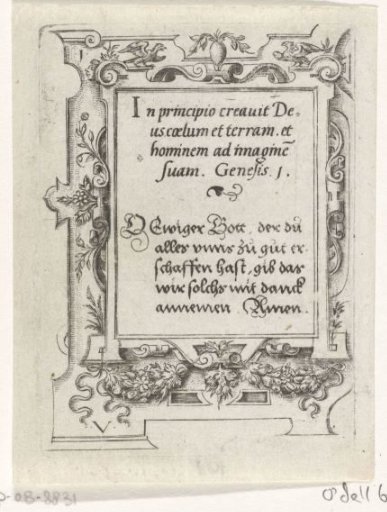 In principio creavit De,
us cœlum et terram. et
hominem ad imaginē
suam. Genesis. 1.
O Ewiger Gott, der du
alles vnns zu gut er,
schaffen hast, gib das
wir solchs mit danck
annemen. Amen.
V